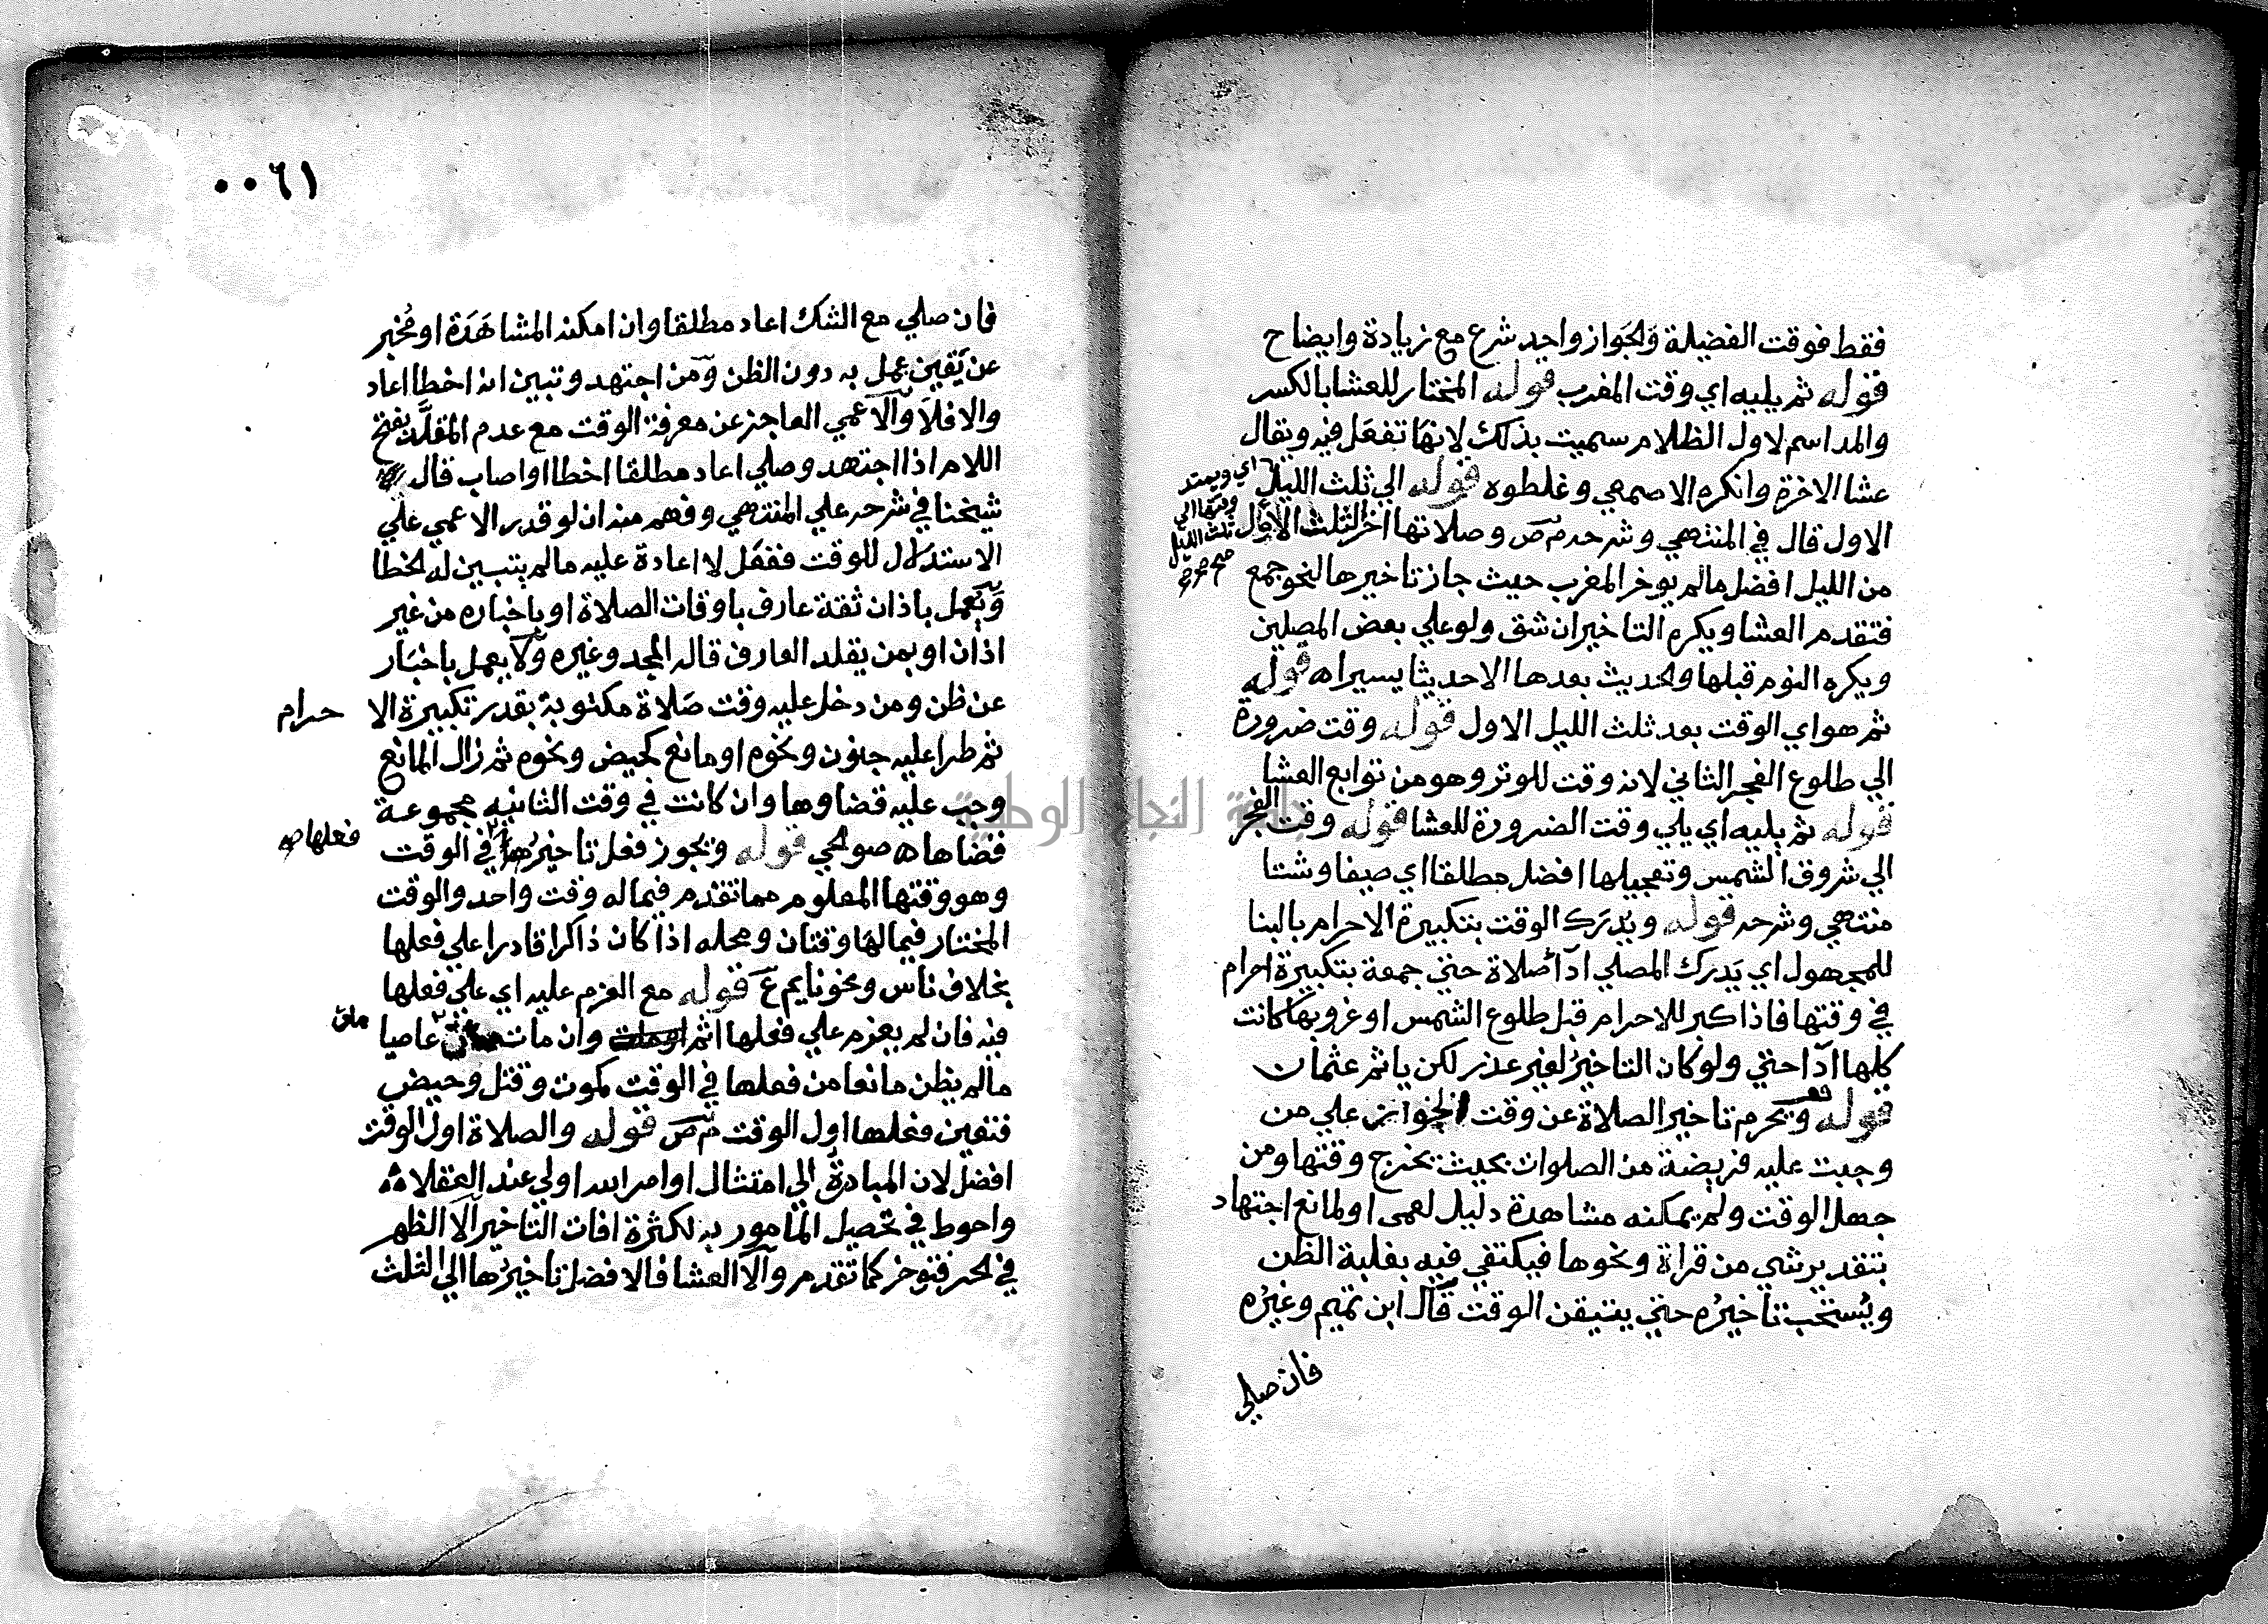 فقط فوقت الفضيلة والجواز واحد شرع مع زيادة وايضاح
قوله ثم يليه اي وقت المغرب قوله المختار للعشا بالكسر
والمد اسم لاول الظلام سميت بذلك لانها تفعل فيه ويقال
عشا الاخرة وانكره الاصمعي وغلطوه قوله الي ثلث الليل
اي ويمتد وقتها الي ثلث الليل صح
الاول قال في المنتهي وشرحه م ص وصلاتها اخر الثلث الاول
من الليل افضل ما لم يوخر المغرب حيث جاز تاخيرها لنحو جمع
فتقدم العشا ويكره التاخير ان شق ولو علي بعض المصلين
ويكره النوم قبلها والحديث بعدها الا حديثا يسيرا اه قوله
ثم هو اي الوقت بعد ثلث الليل الاول قوله وقت ضرورة
الي طلوع الفجر الثاني لانه وقت للوتر وهو من توابع العشا
قوله ثم يليه اي يلي وقت الضرورة للعشا قوله وقت الفجر
الي شروق الشمس وتعجيلها افضل مطلقا اي صيفا وشتا
منتهي وشرحه قوله ويدرك الوقت بتكبيرة الاحرام بالبنا
للمجهول اي يدرك المصلي ادا صلاة حتي جمعة بتكبيرة احرام
في وقتها فاذا كبر للاحرام قبل طلوع الشمس او غروبها كانت
كلها ادا حتي ولو كان التاخير لغير عذر لكن ياثم عثمان
قوله ويحرم تاخير الصلاة عن وقت الجواز علي من
وجبت عليه فريضة من الصلوات بحيث يخرج وقتها ومن
جهل الوقت ولم يمكنه مشاهدة دليل لعمى او لمانع اجتهاد
بتقدير شي من قراة ونحوها فيكتفي فيه بغلبة الظن
ويستحب تاخيره حتي يتيقن الوقت قال ابن تميم وغيره
فان صلي
٠٠٦١
فان صلي مع الشك اعاد مطلقا وان امكنه المشاهدة او مخبر
عن يقين عمل به دون الظن ومن اجتهد وتبين انه اخطا اعاد
والا فلا والاعمي العاجز عن معرفة الوقت مع عدم المقلد بفتح
اللام اذا اجتهد وصلي اعاد مطلقا اخطا او اصاب قال
شيخنا في شرحه علي المنتهي وفهم منه ان لو قدر الاعمي علي
الاستدلال للوقت ففعل لا اعادة عليه ما لم يتبين له الخطا
ويعمل باذان ثقة عارف باوقات الصلاة او باخباره من غير
اذان او بمن يقلد العارف قاله المجد وغيره ولا يعمل باخبار
عن ظن ومن دخل عليه وقت صلاة مكتوبة بقدر تكبيرة الا حرام
ثم طرا عليه جنون ونحوه او مانع كحيض ونحوه ثم زال المانع
وجب عليه قضاوها وان كانت في وقت الثانيه مجموعة
قضاها اه صوالحي قوله ويجوز فعل تاخيرها في الوقت
فعلها ص
وهو وقتها المعلوم مما تقدم فيما له وقت واحد والوقت
المختار فيما لها وقتان ومحله اذا كان ذاكرا قادرا علي فعلها
بخلاف ناس ونحو نايم ع قوله مع العزم عليه اي علي فعلها
فيه فان لم يعزم علي فعلها اثم وان مات عاصيا
مات
ما لم يظن مانعا من فعلها في الوقت كموت وقتل وحيض
فتعين فعلها اول الوقت م ص قوله والصلاة اول الوقت
افضل لان المبادرة الي امتثال اوامر الله اولي عند العقلاء
واحوط في تحصيل المامور به لكثرة افات التاخير الا الظهر
في الحر فتوخر كما تقدم والا العشا فالافضل تاخيرها الي الثلث
جامعة النجاح الوطنية